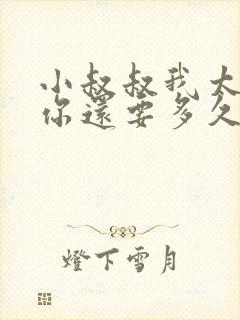 小叔叔我大
你還要多久
燈下雪月